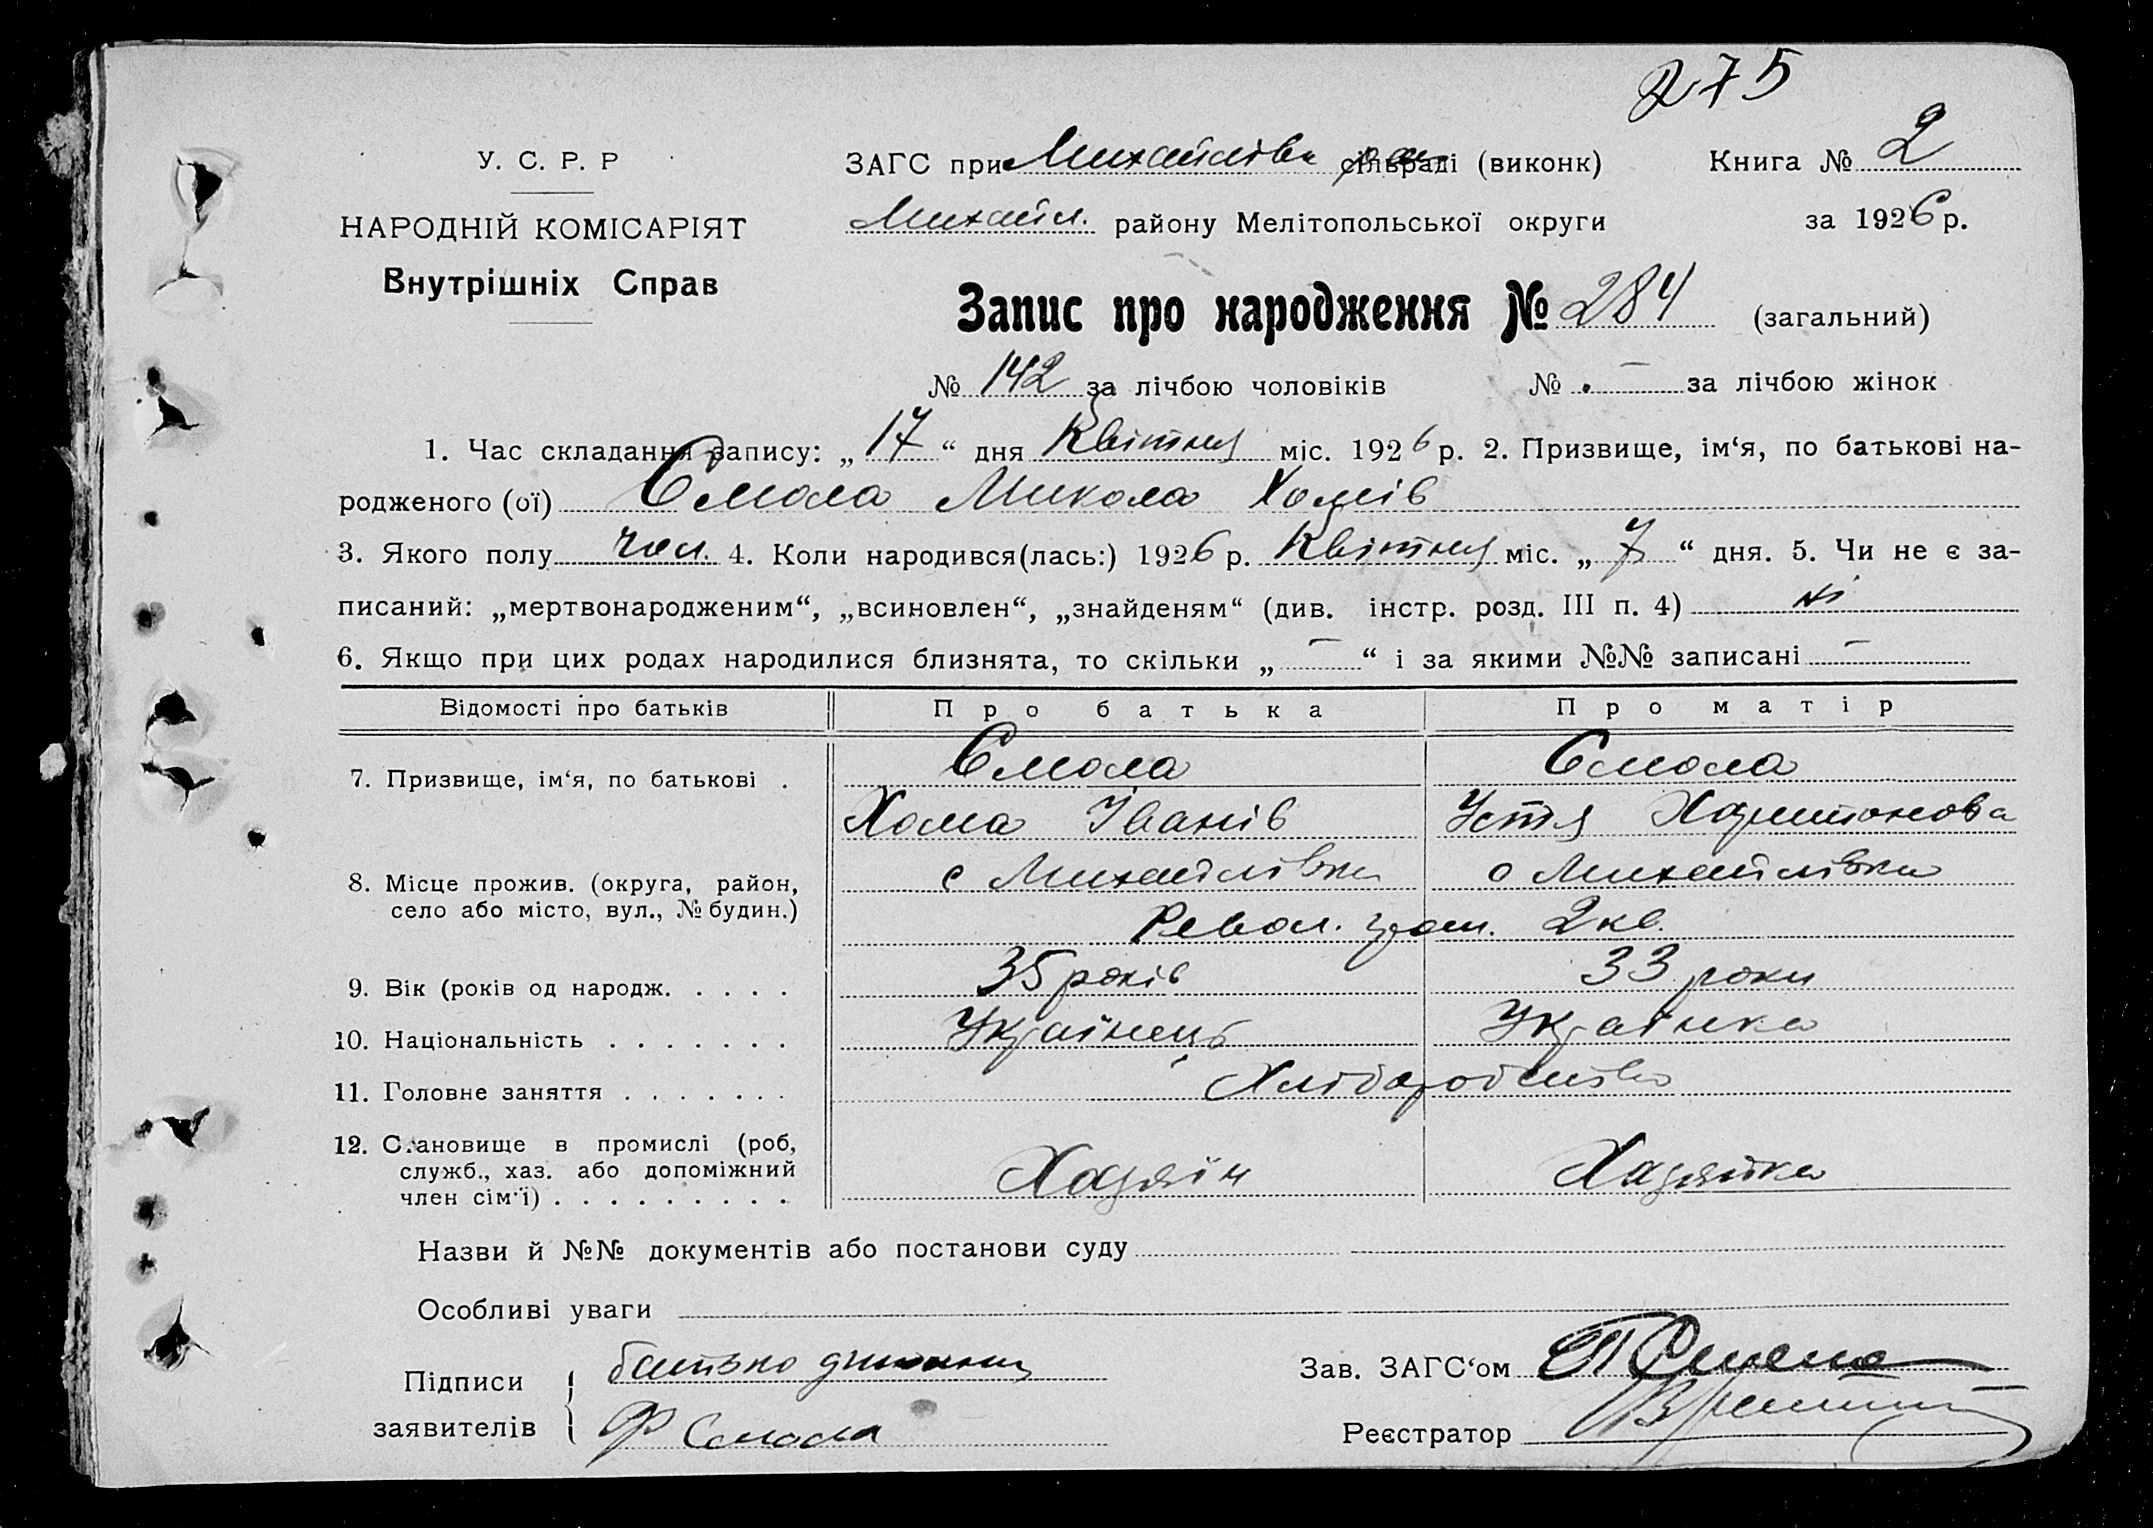 275
У. С. Р. Р
ЗАГС при Михайлівк. сільраді (виконк) Книга № 2
НАРОДНІЙ КОМІСАРІЯТ
Михайл. району Мелітопольської округи за 1926 р.
Внутрішніх Справ
Запис про народження № 284 (загальний)
№ 142 за лічбою чоловіків № - за лічбою жінок
1. Час складання запису: „17“ дня Квітня міс. 1926 р. 2. Призвище, ім‘я, по батькові на-
родженого (ої) Смола Микола Хомів
3. Якого полу чол. 4. Коли народився(лась:) 1926 р. Квітня міс. „7“ дня. 5. Чи не є за-
писаний: „мертвонародженим“, „всиновлен“, „знайденям“ (див. інстр. розд. III п. 4) ні
6. Якщо при цих родах народилися близнята, то скільки „-“ і за якими №№ записані -
Відомості про батьків Про батька Про матір
7. Призвище, ім‘я, по батькові . Смола Смола
Хома Іванів Устя Харитонова
8. Місце прожив. (округа, район, с Михайлівка с Михайлівка
село або місто, вул., № будин.)
Револ. 2 кв.
9. Вік (років од народж. . . . . 35 років 33 роки
10. Національність . . . . . . . Українець Українка
11. Головне заняття . . . . . . . Хліборобство
12. Становище в промислі (роб,
служб., хаз. або допоміжний Хазяїн Хазяйка
член сім‘ї) . . . . . . . . .
Назви й №№ документів або постанови суду
Особливі уваги
Підписи батько дитини
Зав. ЗАГС‘ом
заявителів Ф Смола
Реєстратор